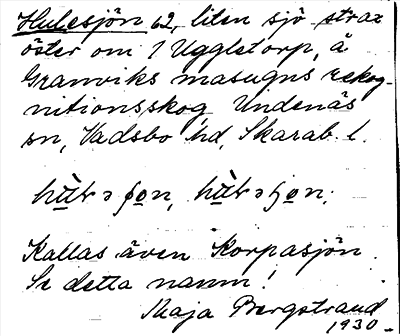 Hulesjön 62, liten sjö strax
öster om 1 Uggletorp, å
Granviks masugns rekog-
nitionsskog Undenäs
sn, Vadsbo hd, Skarab. l.
Kallas även Korpasjön.
Se detta namn!
Maja Bergstrand
1930.